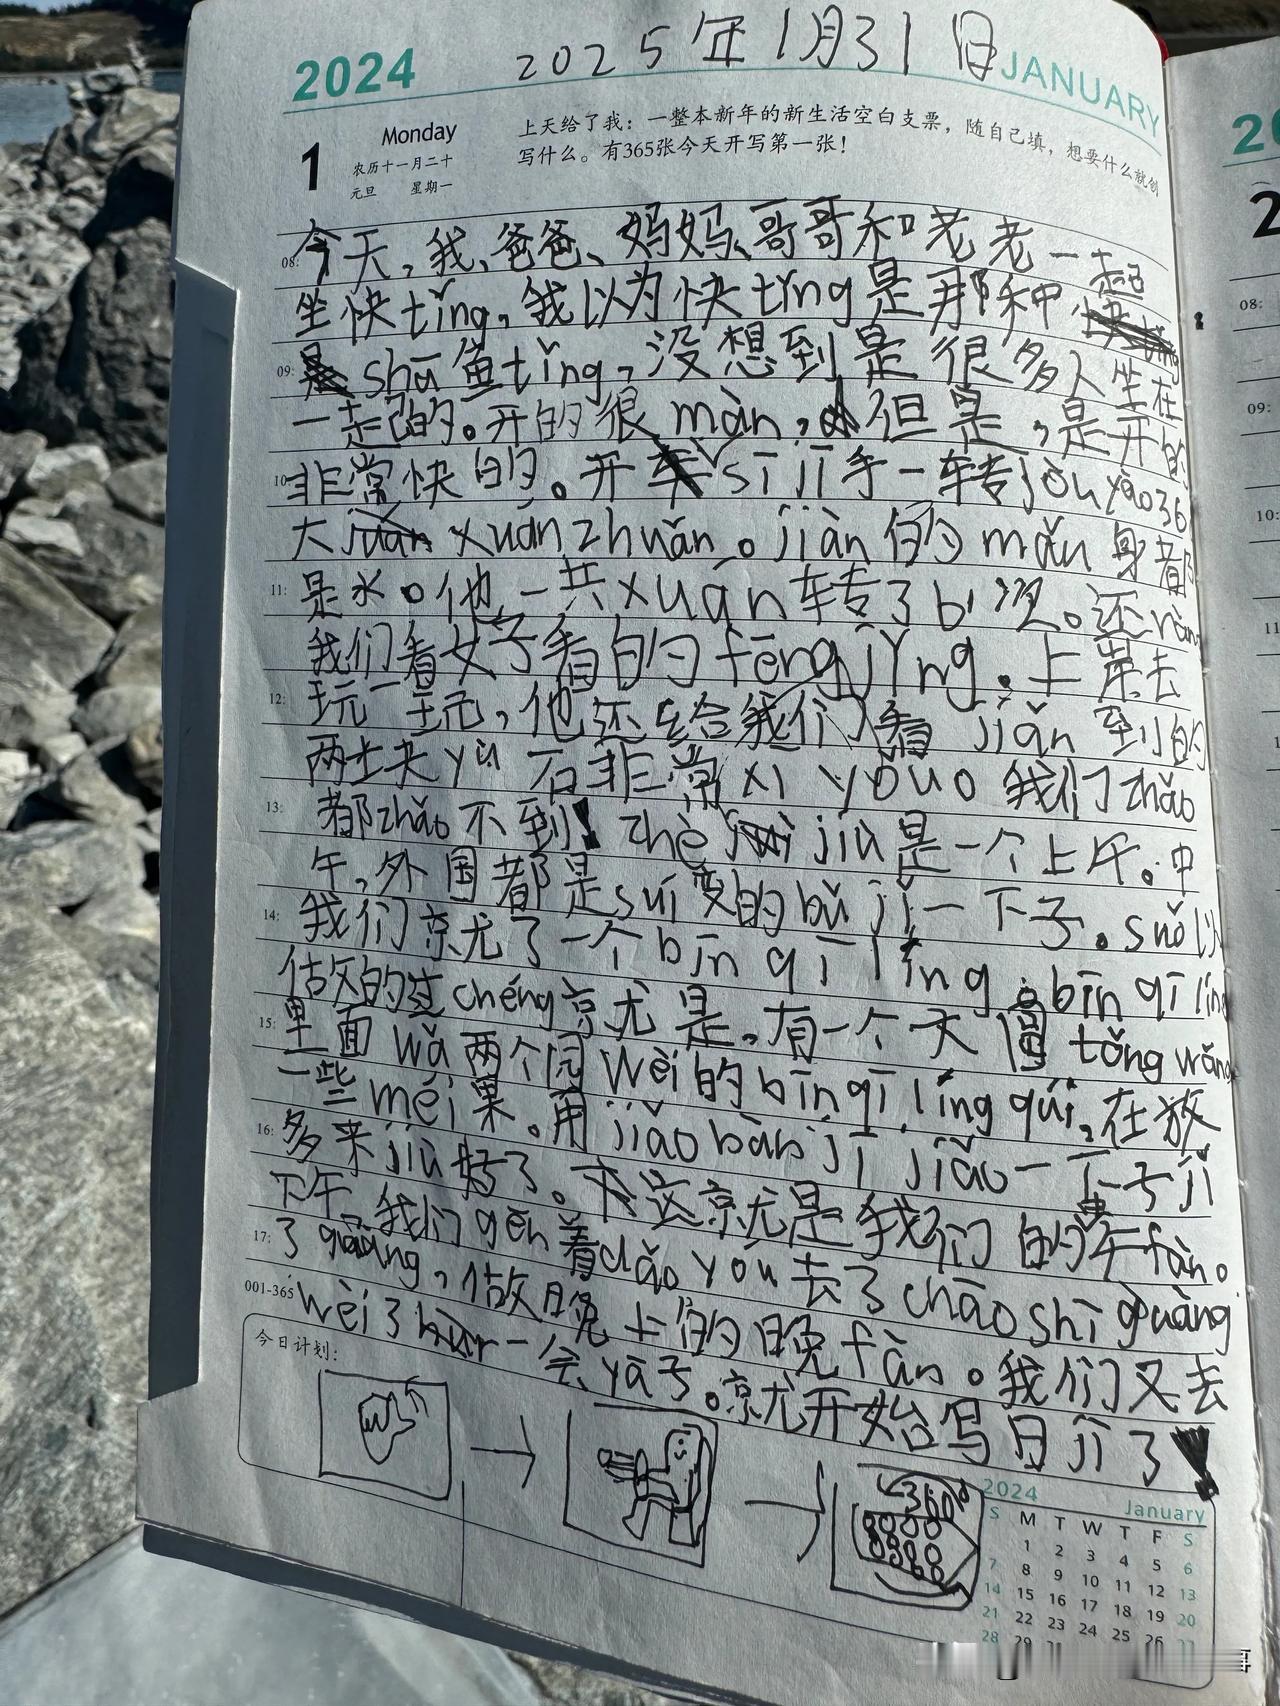 2024
2025年1月31日
JANUARY
1
Monday
农历十一月二十
元旦 星期一
上天给了我：一整本新年的新生活空白支票，随自己填，想要什么就创
写什么。有365张今天开写第一张！
今天，我、爸爸、妈妈、哥哥和老老一起
08:
坐快tǐng，我以为快tǐng是那种
09:
shā鱼tǐng，没想到是很多人坐在
一起的。开的很màn，但是，是开的
10:
非常快的。开sī jī手一转jòu yào 36
大xuán zhuǎn。jiàn的mǎn身都
11:
是水。他一共xuán转了6次。还ràng
我们看女子看的fēngjǐng，上岸去
12:
玩一玩，他还给我们看jiǎn到的
两士夬yù石非常xī yǒuo我们zhǎo
13:
都zhǎo不到！zhè jiù是一个上午。中
午，外国都是suí变的bǔ jǐ一下子。suǒ以
14:
我们京尤了一个bīn qī líng，bīn qī líng
做的过chéng京尤是，有一个大圆tǒng wǎng
15:
里面wā两个园wèi的bīn qī líng qúi，在放
一些méi果。用jiǎo bàn jī jiǎo一下子jǐ
16:
多来jiù好了。这京尤是我们的中午fàn。
下午，我们gēn着dǎo yóu去了chāo shì guàng
17:
了guàng，做晚上的晚fàn。我们又去
001-365
wèi了一会yā子。京尤开始写日jì了！
今日计划：
360°
2024
January
S M T W T F S
1 2 3 4 5 6
7 8 9 10 11 12 13
14 15 16 17 18 19 20
21 22 23 24 25 26
28 29
哥